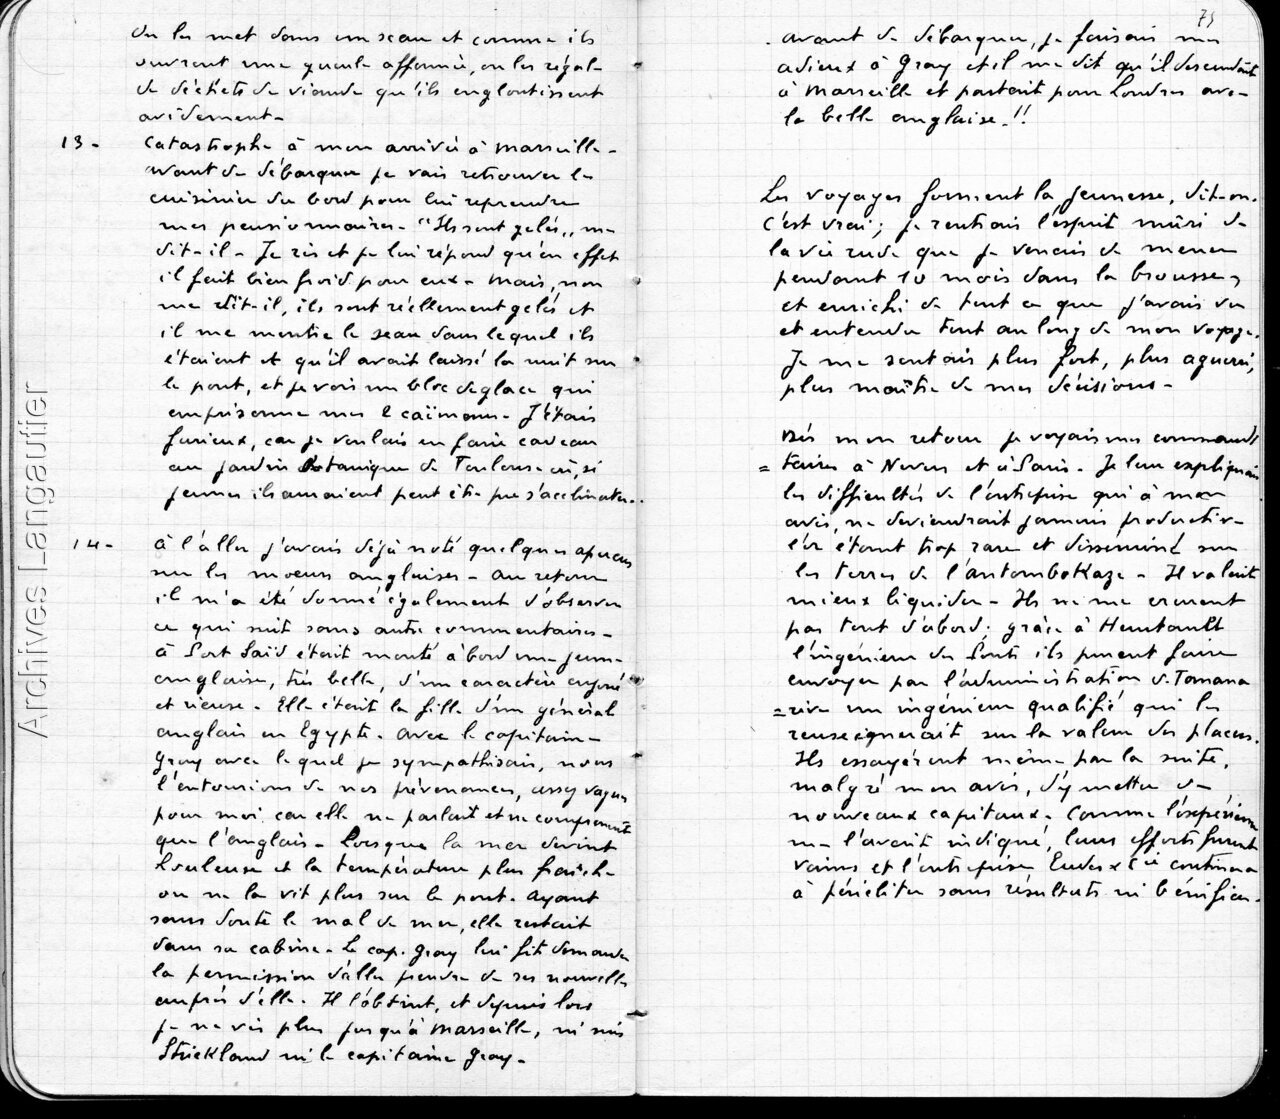 on les met dans un seau et comme ils
ouvrent une gueule affamée, on les régale
de déchets de viande qu'ils engloutissent
avidement -
13 - Catastrophe à mon arrivée à Marseille -
avant de débarquer je vais retrouver le
cuisinier du bord pour lui reprendre
mes pensionnaires - "Ils sont gelés" me
dit-il - Je ris et je lui répond qu'en effet
il fait bien froid pour eux - Mais, non
me dit-il, ils sont réellement gelés et
il me montre le seau dans lequel ils
étaient et qu'il avait laissé la nuit sur
le pont, et je vois un bloc de glace qui
emprisonne mes 2 caïmans - J'étais
furieux, car je voulais en faire cadeau
au jardin Botanique de Toulouse où, si
jeunes ils auraient peut être pu s'acclimater..
14 - à l'aller j'avais déjà noté quelques apercus
sur les moeurs anglaises - au retour
il m'a été donné également d'observer
ce qui suit sans autre commentaires -
à Port Saïd était monté à bord une jeune
anglaise, très belle, d'un caractère enjoué
et rieuse - Elle était la fille d'un général
anglais en Egypte - avec le capitaine
Gray avec lequel je sympathisais, nous
l'entourions de nos prévenances, assez vagues
pour moi car elle ne parlait et ne comprenait
que l'anglais - Lorsque la mer devint
houleuse et la température plus fraîche
on ne la vit plus sur le pont. Ayant
sans doute le mal de mer, elle restait
dans sa cabine - Le cap. Gray lui fit demander
la permission d'aller prendre de ses nouvelles
auprès d'elle. Il l'obtint, et depuis lors
je ne vis plus jusqu'à Marseille, ni miss
Strickland ni le capitaine Gray -
75
avant de débarquer, je faisais mes
adieux à Gray et il me dit qu'il descendait
à Marseille et partait pour Londres avec
la belle anglaise.!!
Les voyages forment la jeunesse, dit-on.
C'est vrai; je rentrais l'esprit mûri de
la vie rude que je venais de mener
pendant 10 mois dans la brousse,
et enrichi de tout ce que j'avais vu
et entendu tout au long de mon voyage.
Je me sentais plus fort, plus aguerri,
plus maître de mes décisions -
Dès mon retour je voyais mes commandi
= taires à Nevers et à Paris - Je leur expliquai
les difficultés de l'entreprise qui à mon
avis, ne deviendrait jamais productive
l'or étant trop rare et disséminé sur
les terres de l'Antombokaze - Il valait
mieux liquider - Ils ne me crurent
pas tout d'abord; grâce à
l'ingénieur des Ponts ils purent faire
envoyer par l'administration de Tamana
= rive un ingénieur qualifié qui les
renseignerait sur la valeur des placers.
Ils essayèrent même par la suite,
malgré mon avis, d'y mettre de
nouveaux capitaux - Comme l'expérience
me l'avait indiqué, leurs efforts furent
vains et l'entreprise continua
à péricliter sans résultats ni bénéfices -
Archives Langautier